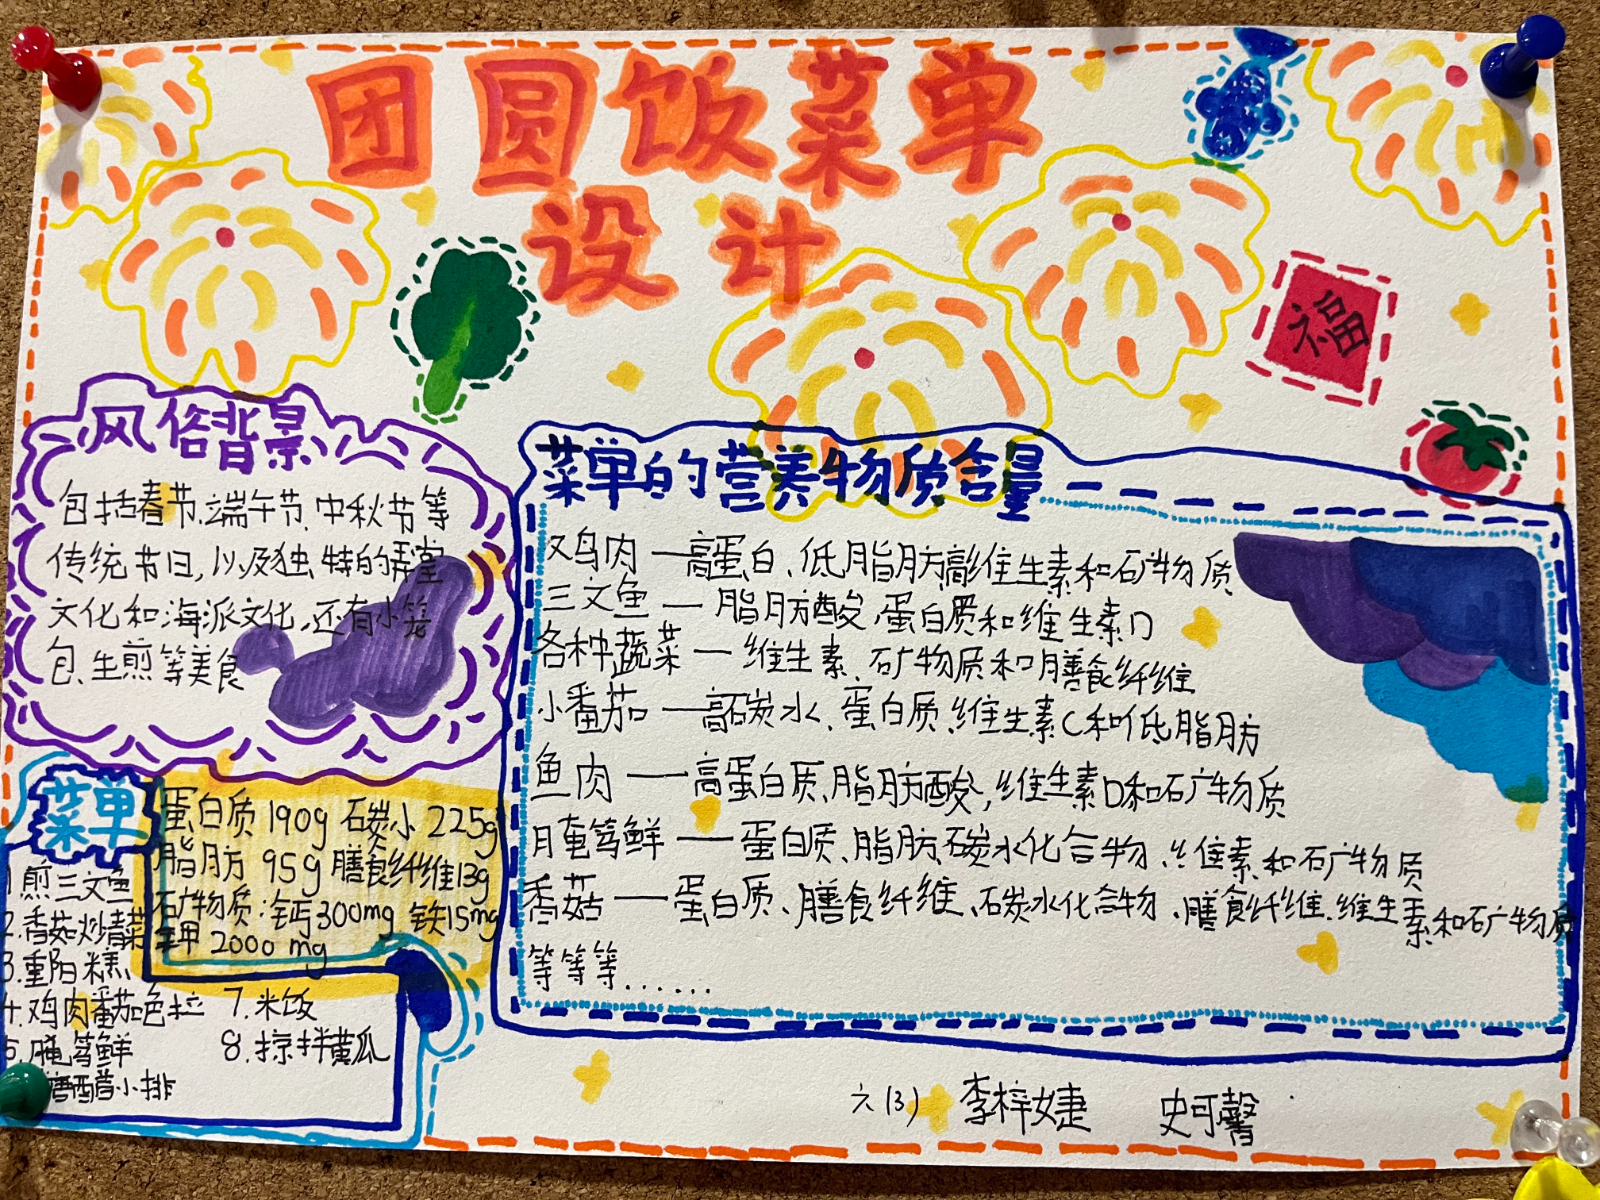 团圆饭菜单
设计
福
风俗背景
包括春节、端午节、中秋节等
传统节日,以及独特的弄堂
文化和海派文化,还有小笼
包、生煎等美食
菜单的营养物质含量
鸡肉——高蛋白、低脂肪高维生素和矿物质
三文鱼——脂肪酸、蛋白质和维生素D
各种蔬菜——维生素、矿物质和膳食纤维
小番茄——高碳水、蛋白质、维生素C和低脂肪
鱼肉——高蛋白质、脂肪酸,维生素D和矿物质
腌笃鲜——蛋白质、脂肪、碳水化合物、维素和矿物质
香菇——蛋白质、膳食纤维、碳水化合物、膳食纤维、维生素和矿物质
等等等......
菜单
蛋白质190g 碳水225g
脂肪 95g 膳食纤维13g
矿物质:钙300mg 铁15mg
钾2000mg
1.煎三文鱼
2.香菇炒青菜
3.重阳糕
4.鸡肉番茄色拉
5.腌笃鲜
糖醋小排
7.米饭
8.凉拌黄瓜
六(3) 李梓婕 史可馨